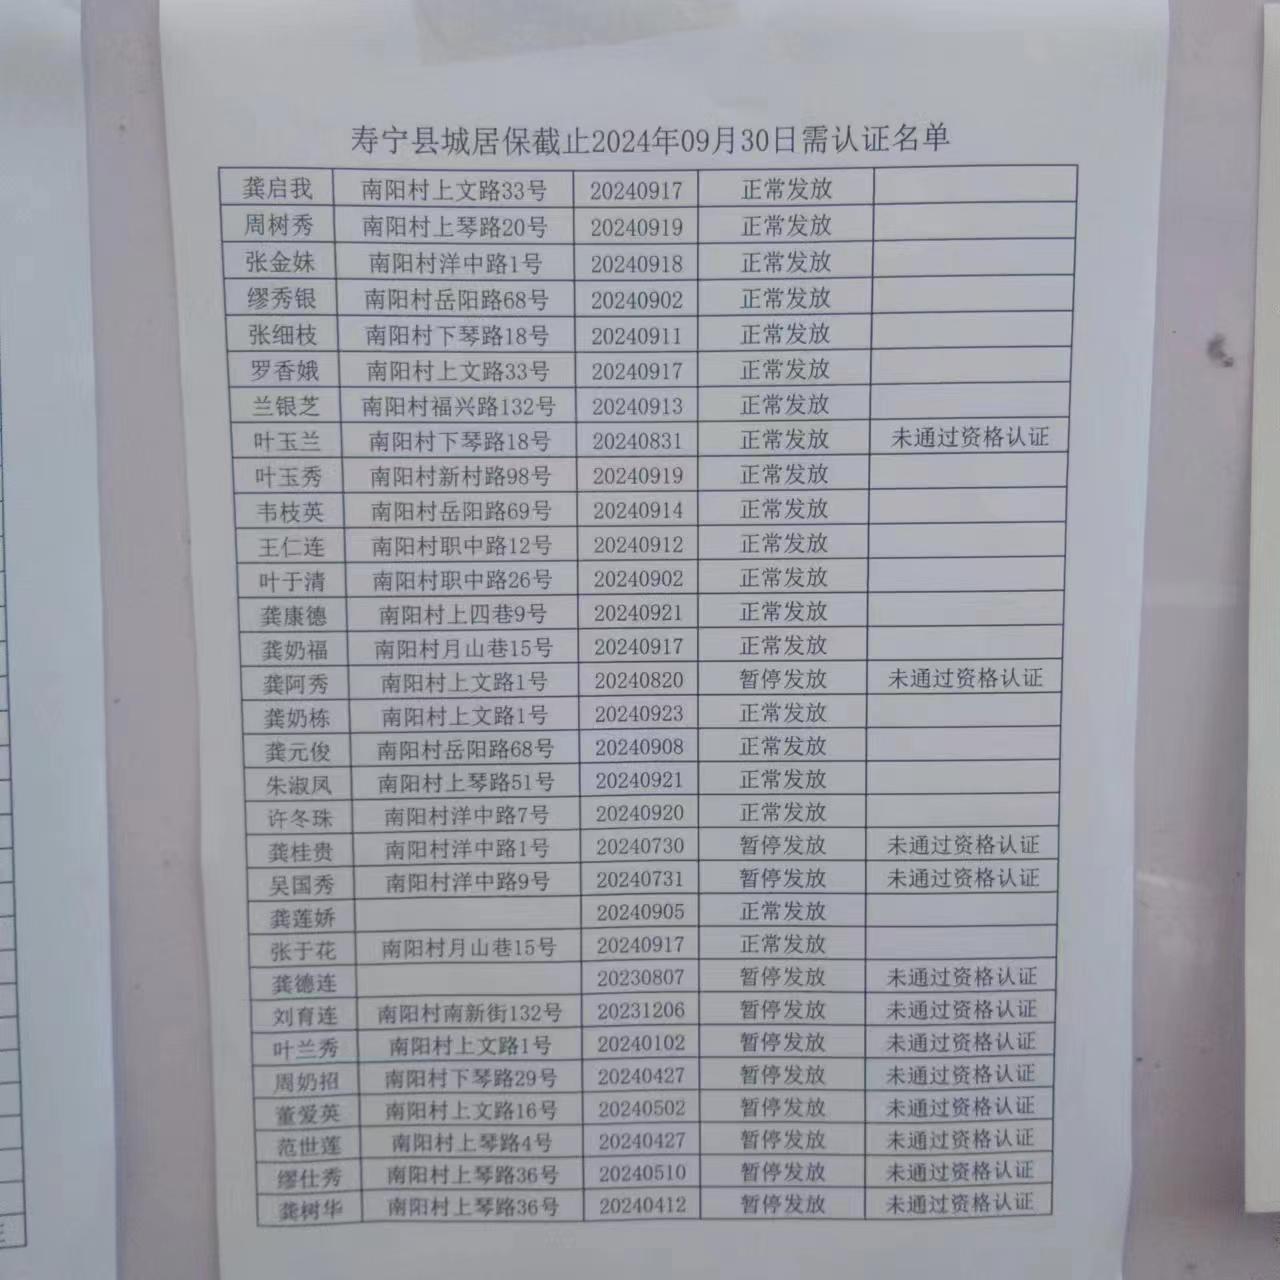 寿宁县城居保截止2024年09月30日需认证名单
龚启我 南阳村上文路33号 20240917 正常发放
周树秀 南阳村上琴路20号 20240919 正常发放
张金妹 南阳村洋中路1号 20240918 正常发放
缪秀银 南阳村岳阳路68号 20240902 正常发放
张细枝 南阳村下琴路18号 20240911 正常发放
罗香娥 南阳村上文路33号 20240917 正常发放
兰银芝 南阳村福兴路132号 20240913 正常发放
叶玉兰 南阳村下琴路18号 20240831 正常发放 未通过资格认证
叶玉秀 南阳村新村路98号 20240919 正常发放
韦枝英 南阳村岳阳路69号 20240914 正常发放
王仁连 南阳村职中路12号 20240912 正常发放
叶于清 南阳村职中路26号 20240902 正常发放
龚康德 南阳村上四巷9号 20240921 正常发放
龚奶福 南阳村月山巷15号 20240917 正常发放
龚阿秀 南阳村上文路1号 20240820 暂停发放 未通过资格认证
龚奶栋 南阳村上文路1号 20240923 正常发放
龚元俊 南阳村岳阳路68号 20240908 正常发放
朱淑凤 南阳村上琴路51号 20240921 正常发放
许冬珠 南阳村洋中路7号 20240920 正常发放
龚桂贵 南阳村洋中路1号 20240730 暂停发放 未通过资格认证
吴国秀 南阳村洋中路9号 20240731 暂停发放 未通过资格认证
龚莲娇 20240905 正常发放
张于花 南阳村月山巷15号 20240917 正常发放
龚德连 20230807 暂停发放 未通过资格认证
刘育连 南阳村南新街132号 20231206 暂停发放 未通过资格认证
叶兰秀 南阳村上文路1号 20240102 暂停发放 未通过资格认证
周奶招 南阳村下琴路29号 20240427 暂停发放 未通过资格认证
董爱英 南阳村上文路16号 20240502 暂停发放 未通过资格认证
范世莲 南阳村上琴路4号 20240427 暂停发放 未通过资格认证
缪仕秀 南阳村上琴路36号 20240510 暂停发放 未通过资格认证
龚树华 南阳村上琴路36号 20240412 暂停发放 未通过资格认证